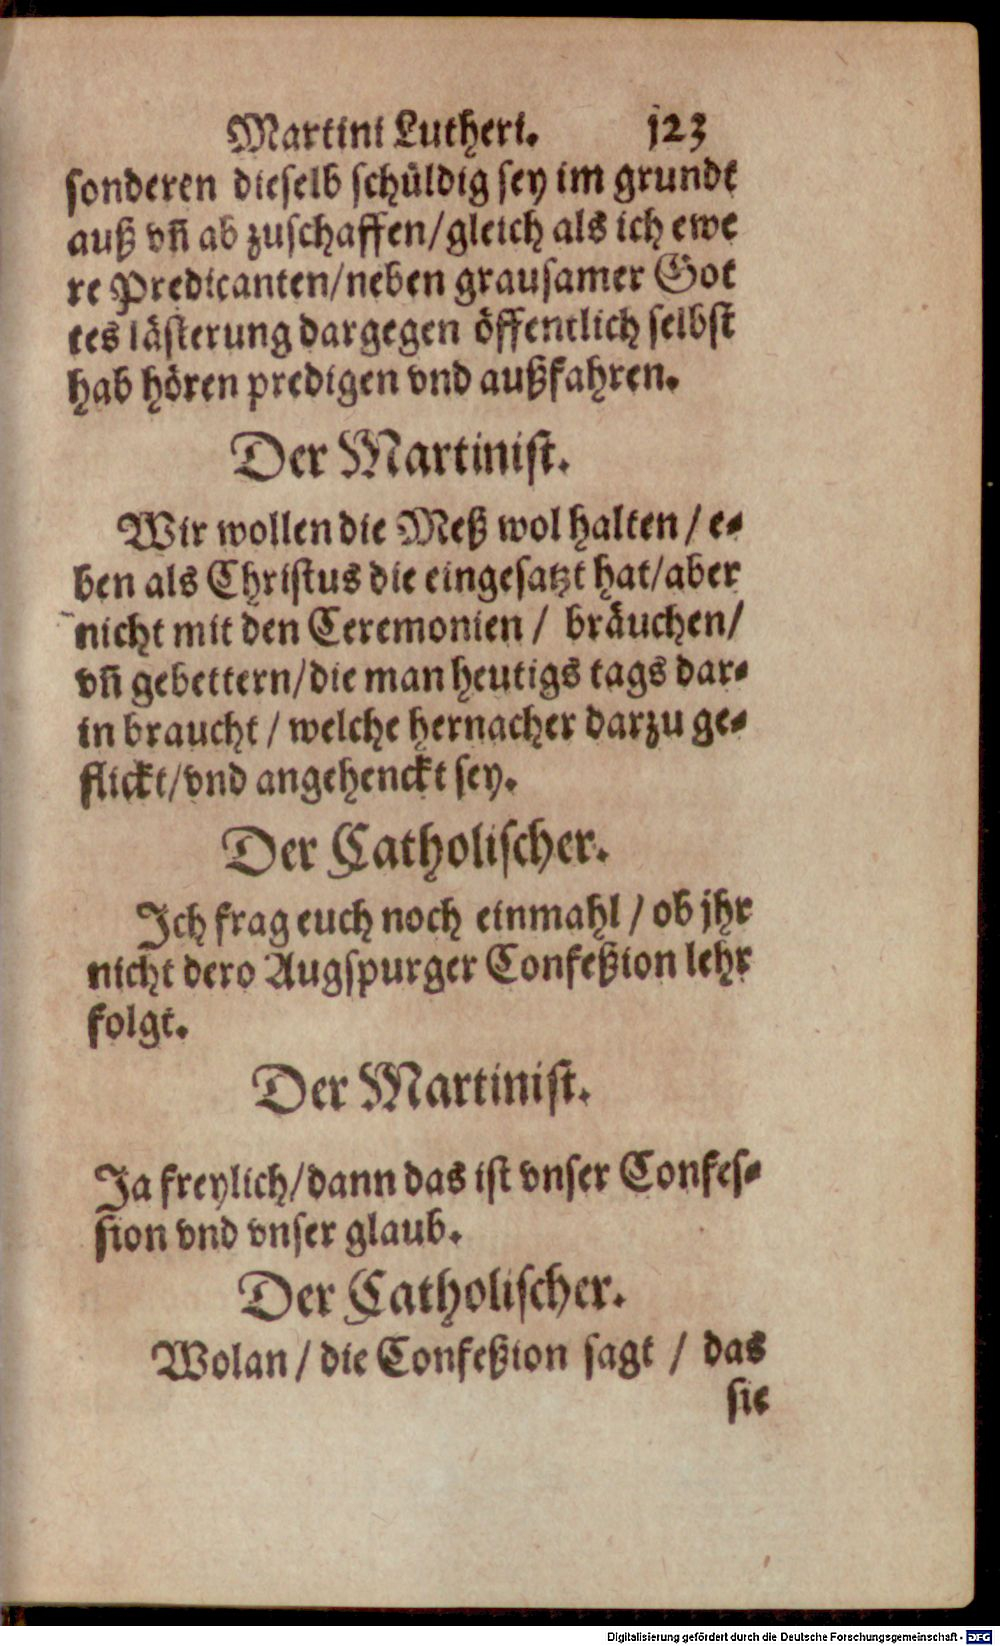 Martini Lutheri. 123
sonderen dieselb schüldig sey im grundt
auß vñ ab zuschaffen/gleich als ich ewe
re Predicanten/neben grausamer Got
tes lästerung dargegen öffentlich selbst
hab hören predigen vnd außfahren.
Der Martinist.
Wir wollen die Meß wol halten / e-
ben als Christus die eingesatzt hat/aber
nicht mit den Ceremonien / bräuchen/
vñ gebettern/die man heutigs tags dar-
in braucht / welche hernacher darzu ge-
flickt/vnd angehenckt sey.
Der Catholischer.
Ich frag euch noch einmahl / ob jhr
nicht dero Augspurger Confeßion lehr
folgt.
Der Martinist.
Ja freylich/dann das ist vnser Confes-
sion vnd vnser glaub.
Der Catholischer.
Wolan / die Confeßion sagt / das
sie
Digitalisierung gefördert durch die Deutsche Forschungsgemeinschaft - DFG